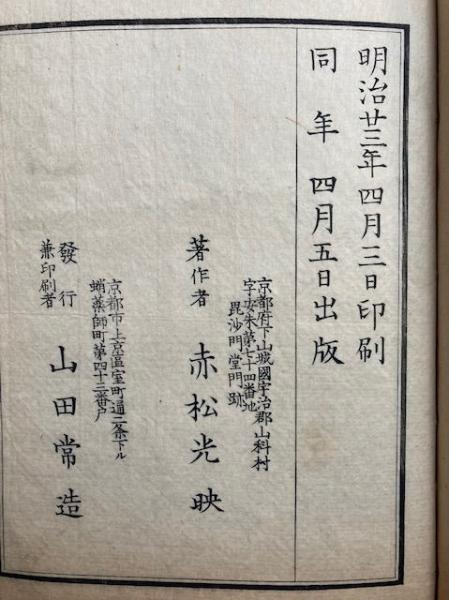 明治廿三年四月三日印刷
同年四月五日出版
京都府下山城國宇治郡山科村
字安朱第七十四番地
毘沙門堂門跡
著作者 赤松光映
京都市上京區室町通二条下ル
蛸薬師町第四十三番戸
發行兼印刷者 山田常造